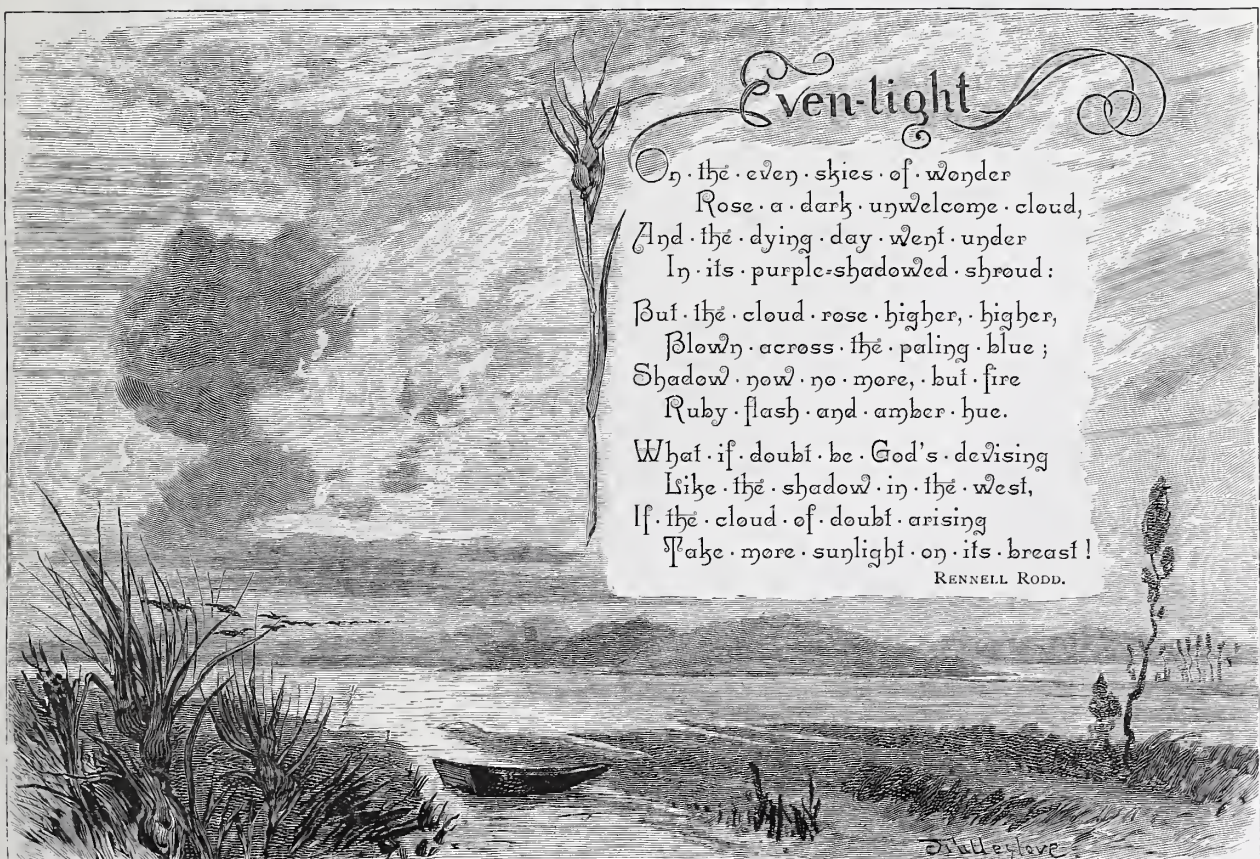 Even-light
On · the · even · skies · of · wonder
Rose · a · dark · unwelcome · cloud,
And · the · dying · day · went · under
In · its · purple-shadowed · shroud :
But · the · cloud · rose · higher, · higher,
Blown · across · the · paling · blue ;
Shadow · now · no · more, · but · fire
Ruby · flash · and · amber · hue.
What · if · doubt · be · God's · devising
Like · the · shadow · in · the · west,
If · the · cloud · of · doubt · arising
Take · more · sunlight · on · its · breast !
RENNELL RODD.